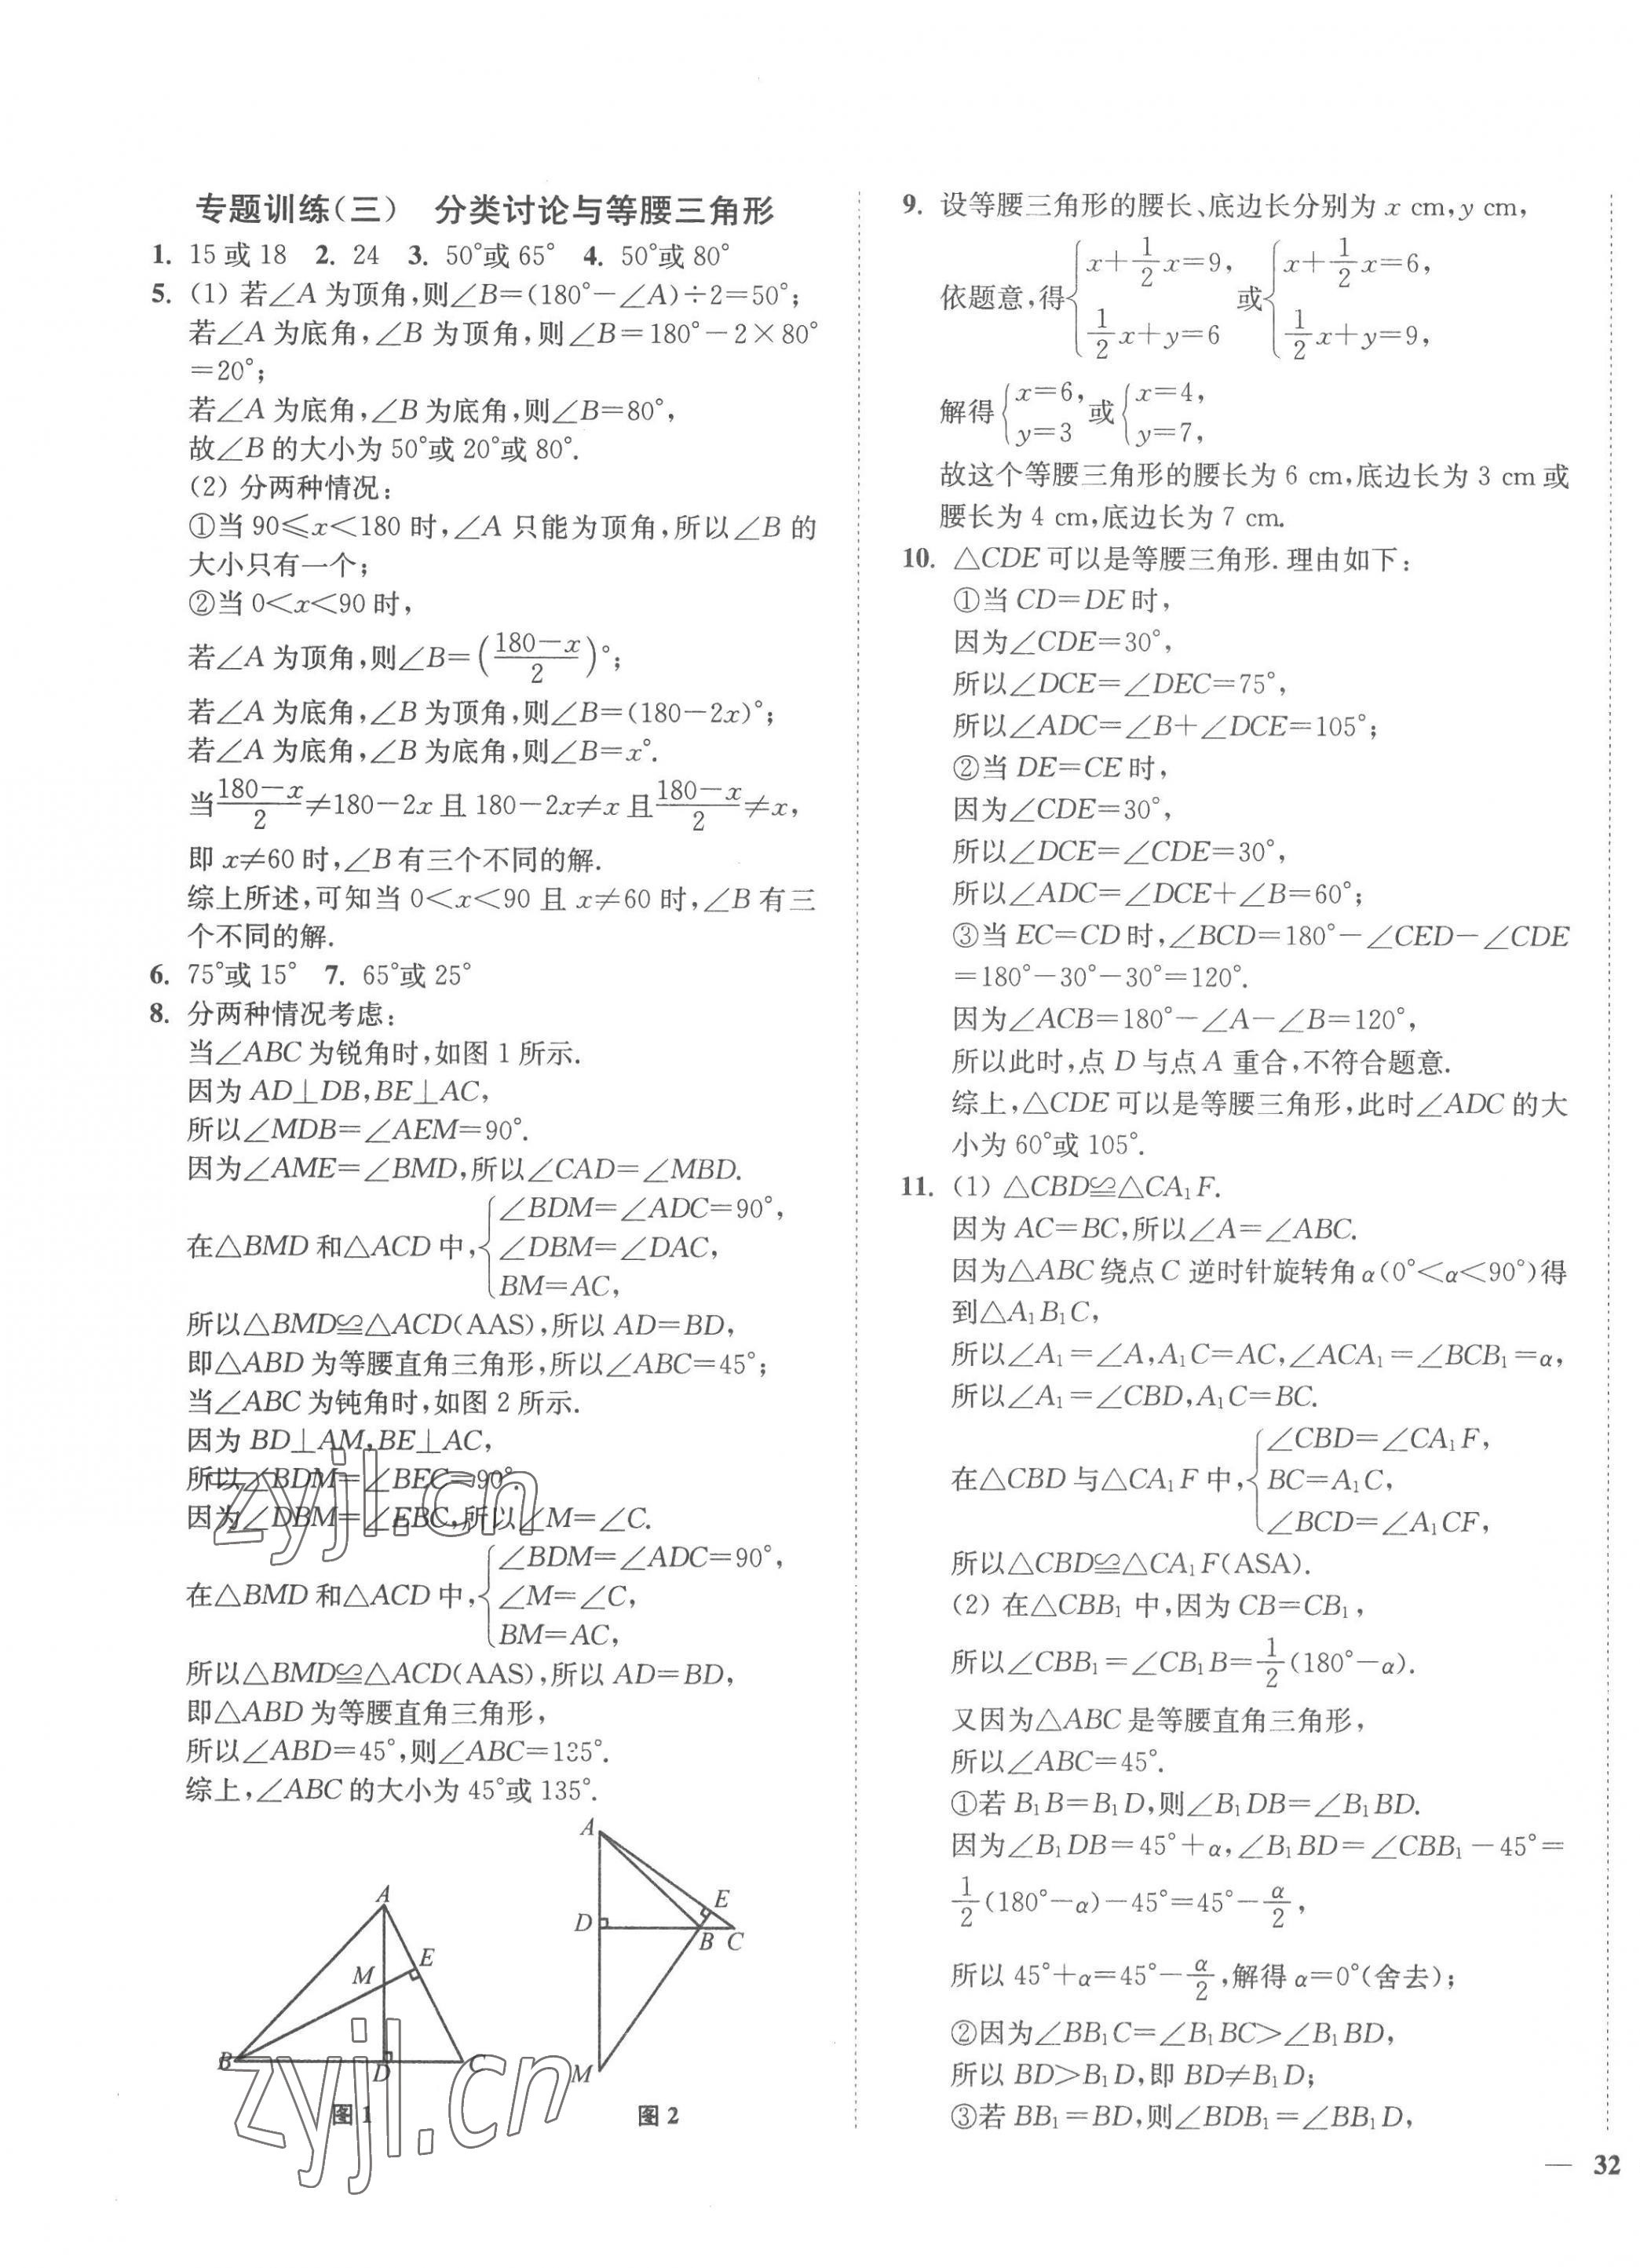 专题训练(三) 分类讨论与等腰三角形
1. 15或18 2. 24 3. 50°或65° 4. 50°或80°
5. (1) 若∠A为顶角,则∠B=(180°-∠A)÷2=50°;
若∠A为底角,∠B为顶角,则∠B=180°-2×80°
=20°;
若∠A为底角,∠B为底角,则∠B=80°,
故∠B的大小为50°或20°或80°.
(2) 分两种情况:
①当90≤x<180时,∠A只能为顶角,所以∠B的
大小只有一个;
②当0<x<90时,
若∠A为顶角,则∠B=((180-x)/2)°;
若∠A为底角,∠B为顶角,则∠B=(180-2x)°;
若∠A为底角,∠B为底角,则∠B=x°.
当(180-x)/2≠180-2x且180-2x≠x且(180-x)/2≠x,
即x≠60时,∠B有三个不同的解.
综上所述,可知当0<x<90且x≠60时,∠B有三
个不同的解.
6. 75°或15° 7. 65°或25°
8. 分两种情况考虑:
当∠ABC为锐角时,如图1所示.
因为AD⊥DB,BE⊥AC,
所以∠MDB=∠AEM=90°.
因为∠AME=∠BMD,所以∠CAD=∠MBD.
在△BMD和△ACD中,{∠BDM=∠ADC=90°,
∠DBM=∠DAC,
BM=AC,
所以△BMD≌△ACD(AAS),所以AD=BD,
即△ABD为等腰直角三角形,所以∠ABC=45°;
当∠ABC为钝角时,如图2所示.
因为BD⊥AM,BE⊥AC,
所以∠BDM=∠BEC=90°.
因为∠DBM=∠EBC,所以∠M=∠C.
在△BMD和△ACD中,{∠BDM=∠ADC=90°,
∠M=∠C,
BM=AC,
所以△BMD≌△ACD(AAS),所以AD=BD,
即△ABD为等腰直角三角形,
所以∠ABD=45°,则∠ABC=135°.
综上,∠ABC的大小为45°或135°.
A
E
M
B
D
C
图1
A
E
D
B C
M
图2
zyjl.cn
zyjl.cn
9. 设等腰三角形的腰长、底边长分别为x cm,y cm,
依题意,得{x+1/2x=9, 1/2x+y=6 或{x+1/2x=6, 1/2x+y=9,
解得{x=6, y=3 或{x=4, y=7,
故这个等腰三角形的腰长为6 cm,底边长为3 cm或
腰长为4 cm,底边长为7 cm.
10. △CDE可以是等腰三角形.理由如下:
①当CD=DE时,
因为∠CDE=30°,
所以∠DCE=∠DEC=75°,
所以∠ADC=∠B+∠DCE=105°;
②当DE=CE时,
因为∠CDE=30°,
所以∠DCE=∠CDE=30°,
所以∠ADC=∠DCE+∠B=60°;
③当EC=CD时,∠BCD=180°-∠CED-∠CDE
=180°-30°-30°=120°.
因为∠ACB=180°-∠A-∠B=120°,
所以此时,点D与点A重合,不符合题意.
综上,△CDE可以是等腰三角形,此时∠ADC的大
小为60°或105°.
11. (1) △CBD≌△CA₁F.
因为AC=BC,所以∠A=∠ABC.
因为△ABC绕点C逆时针旋转角α(0°<α<90°)得
到△A₁B₁C,
所以∠A₁=∠A,A₁C=AC,∠ACA₁=∠BCB₁=α,
所以∠A₁=∠CBD,A₁C=BC.
在△CBD与△CA₁F中,{∠CBD=∠CA₁F,
BC=A₁C,
∠BCD=∠A₁CF,
所以△CBD≌△CA₁F(ASA).
(2) 在△CBB₁中,因为CB=CB₁,
所以∠CBB₁=∠CB₁B=1/2(180°-α).
又因为△ABC是等腰直角三角形,
所以∠ABC=45°.
①若B₁B=B₁D,则∠B₁DB=∠B₁BD.
因为∠B₁DB=45°+α,∠B₁BD=∠CBB₁-45°=
1/2(180°-α)-45°=45°-α/2,
所以45°+α=45°-α/2,解得α=0°(舍去);
②因为∠BB₁C=∠B₁BC>∠B₁BD,
所以BD>B₁D,即BD≠B₁D;
③若BB₁=BD,则∠BDB₁=∠BB₁D,
— 32